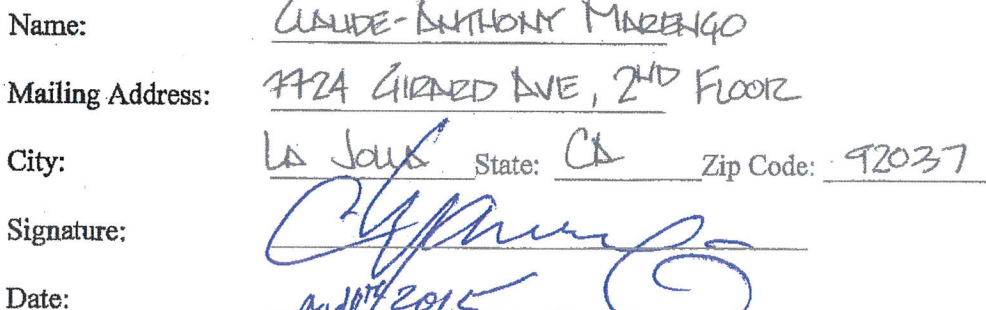 Name: CLAUDE-ANTHONY MARENGO
Mailing Address: 7724 GIRARD AVE, 2ND FLOOR
City: LA JOLLA State: CA Zip Code: 92037
Signature:
Date: 2015